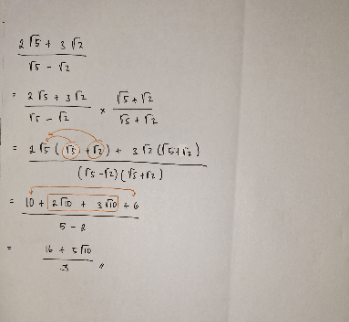 2√5 + 3√2
√5 - √2
= 2√5 + 3√2 × √5 + √2
√5 - √2 √5 + √2
= 2√5 ( √5 + √2 ) + 3√2 ( √5 + √2 )
( √5 - √2 ) ( √5 + √2 )
= 10 + 2√10 + 3√10 + 6
5 - 2
= 16 + 5√10
3 //